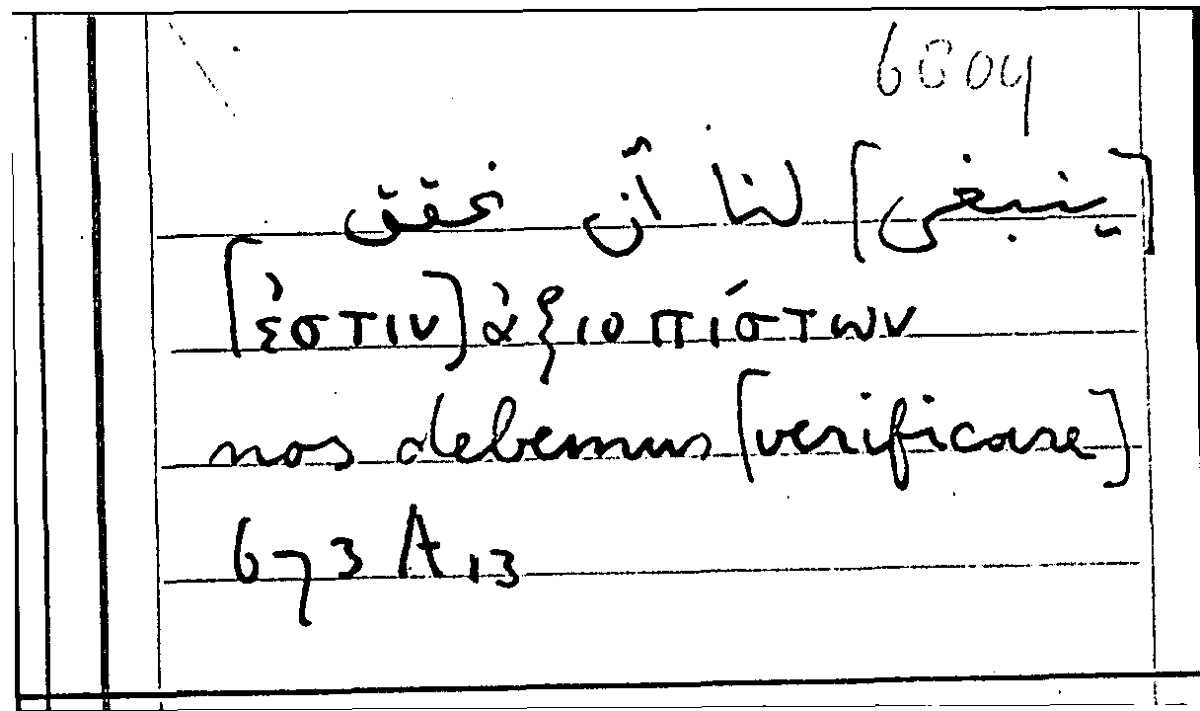 6004
[ينبغى] لنا أن نحقق
[ἐστιν] ἀξιοπίστων
nos debemus [verificare]
673 A 13